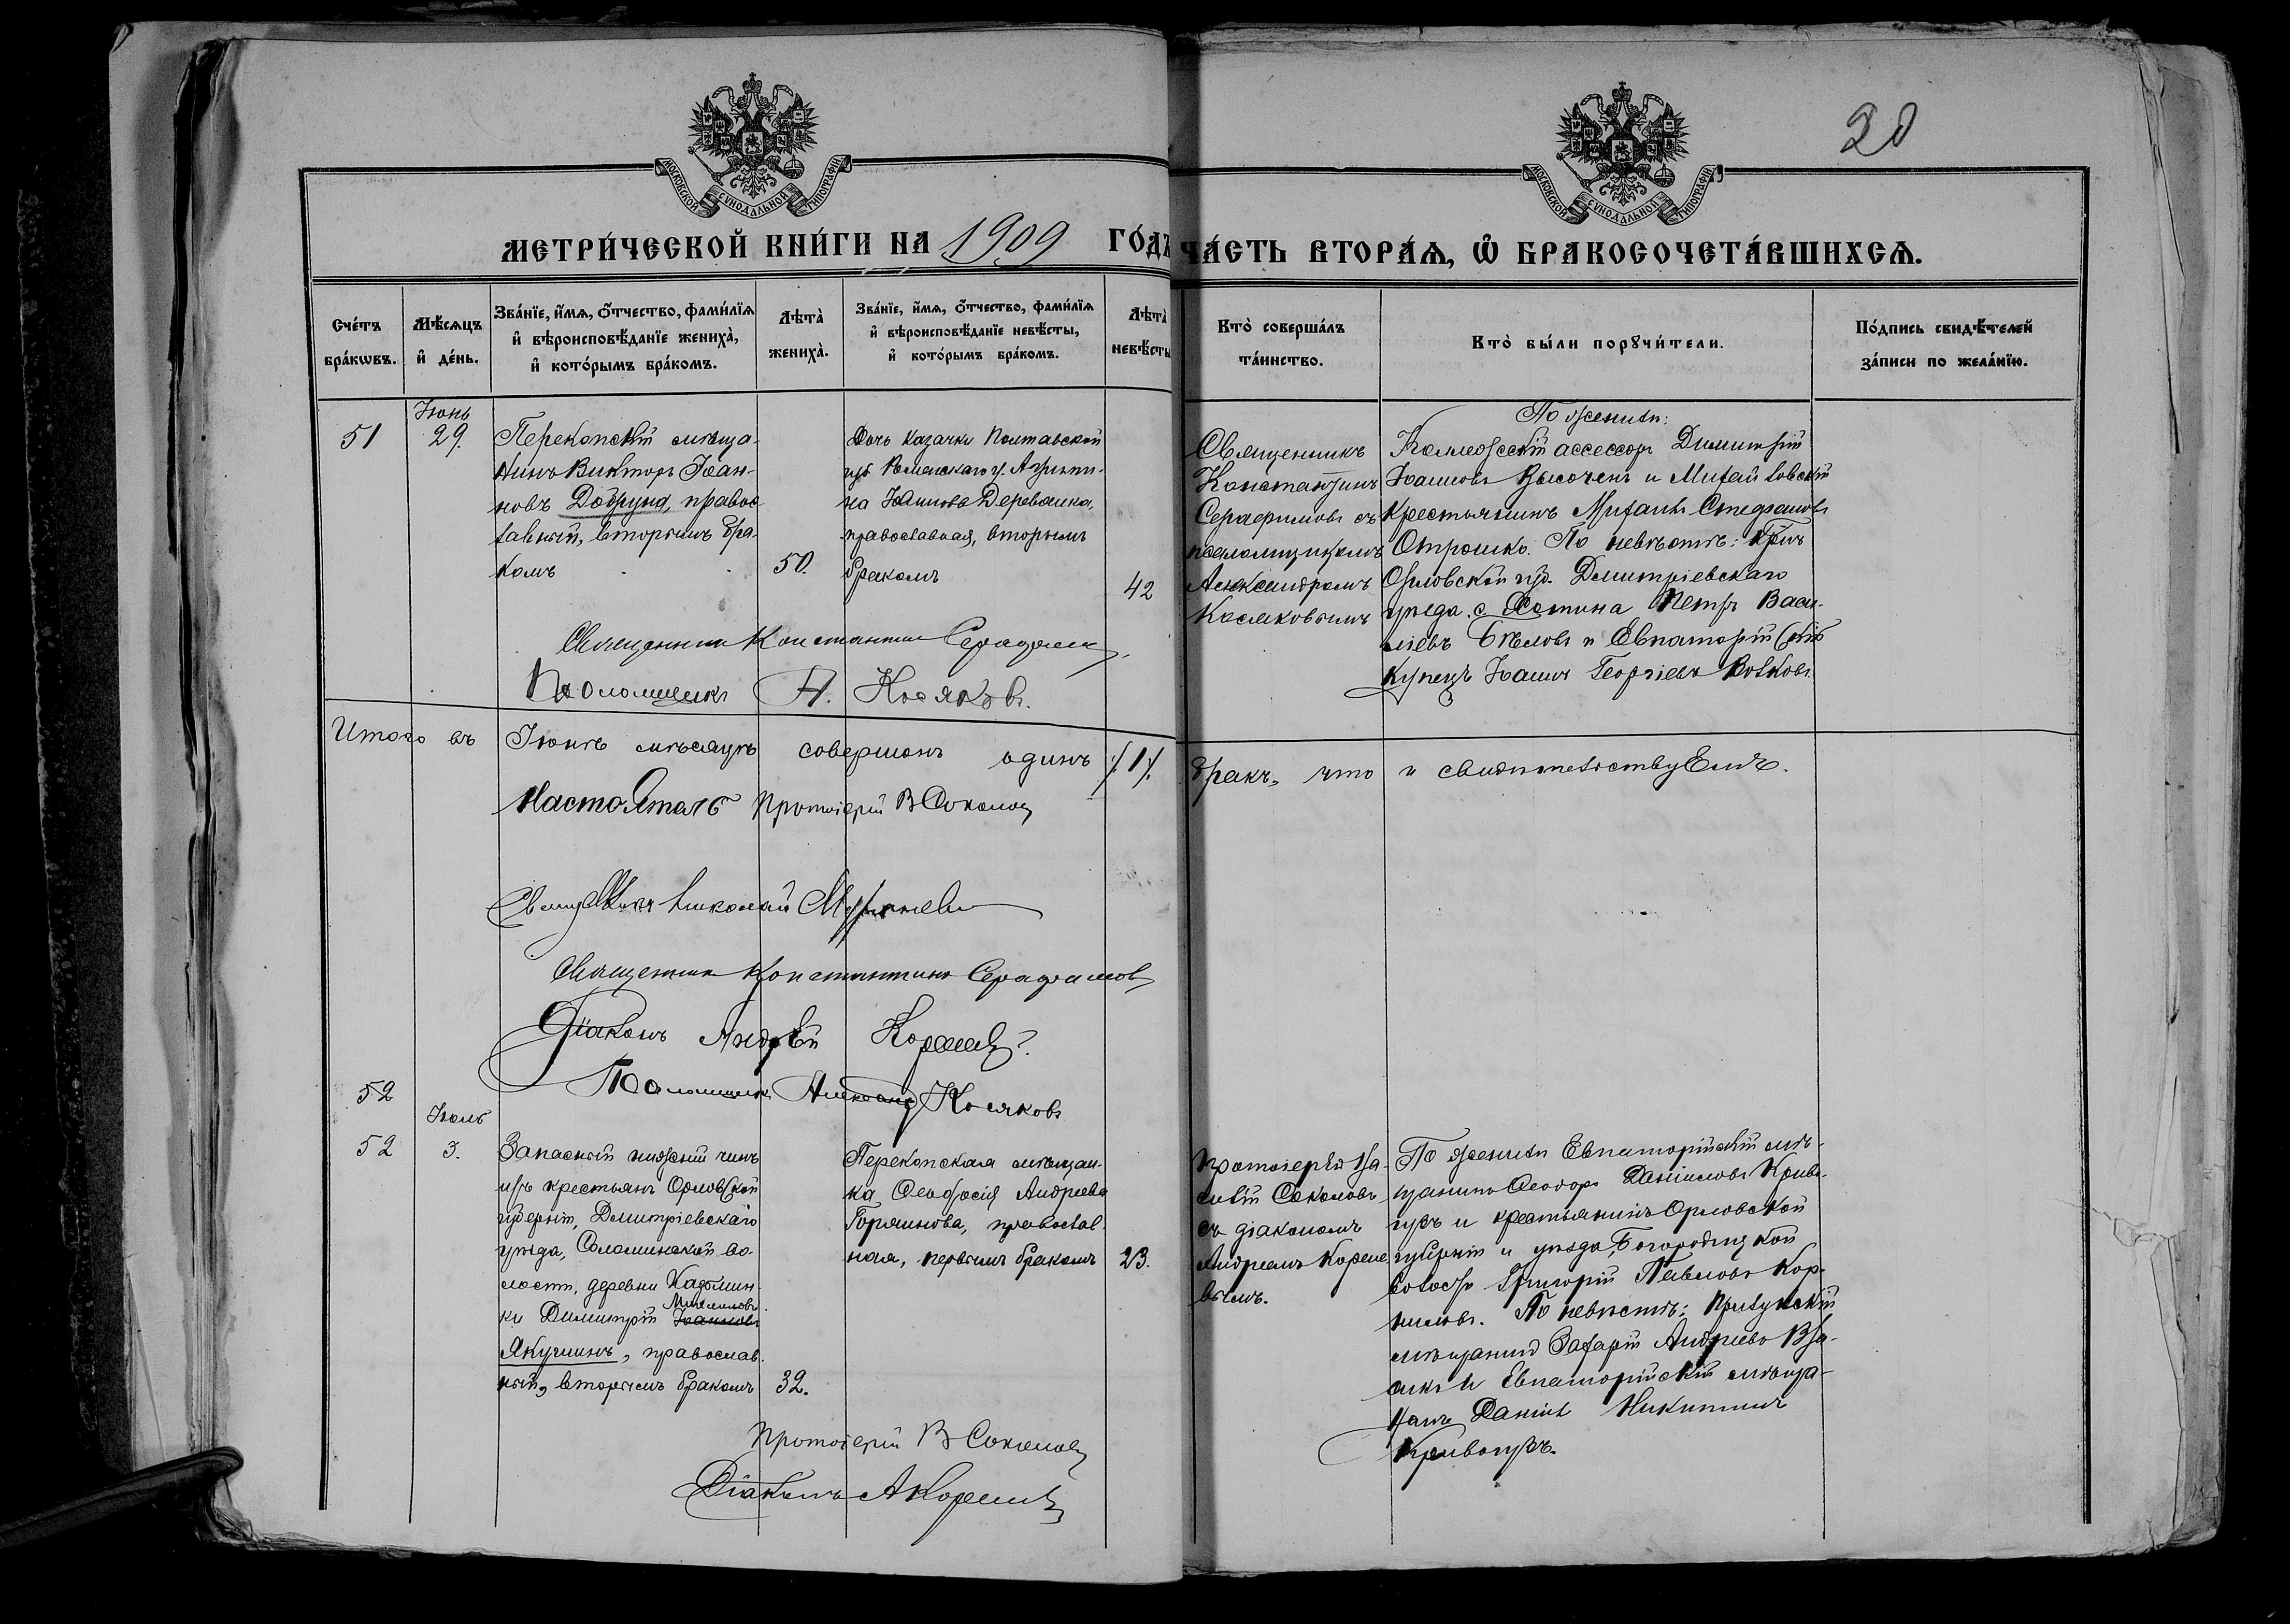 20
МОСКОВСКОЙ СѴНОДАЛЬНОЙ ТИПОГРАФІИ
МОСКОВСКОЙ СѴНОДАЛЬНОЙ ТИПОГРАФІИ
МЕТРИ́ЧЕСКОЙ КНИ́ГИ НА 1909 ГО́ДЪ
ЧА́СТЬ ВТОРА́Ѧ, Ѽ БРАКОСОЧЕТА́ВШИХСѦ.
Сче́тъ
бра́кѡвъ.
Мѣ́сѧцъ
и҆ де́нь.
Зва́нїе, и҆́мѧ, ѻ҆́тчество, фами́лїѧ
и҆ вѣроисповѣ́данїе жениха̀,
и҆ кото́рымъ бра́комъ.
Лѣта̀
жениха̀.
Зва́нїе, и҆́мѧ, ѻ҆́тчество, фами́лїѧ
и҆ вѣроисповѣ́данїе невѣ́сты,
и҆ кото́рымъ бра́комъ.
Лѣта̀
невѣ́сты
Кто̀ соверша́лъ
та́инство.
Кто̀ бы́ли порꙋчи́тели.
По́дпись свидѣ́телей
за́писи по жела́нїю.
51
Іюнь
29.
Перекопскій мѣща-
нинъ Викторъ Іоан-
новъ Добрунд, правос-
лавный, вторымъ бра-
комъ
50.
Дочь казачки Полтавской
губ. Роменскаго у. Агриппи-
на Іоаннова Деревянка,
православная, вторымъ
бракомъ
42
Священникъ
Константинъ
Серафимовъ съ
псаломщикомъ
Александромъ
Косяковымъ
По женихѣ:
Коллежскій ассессоръ Димитрій
Іоанновъ Высоченъ и Михайловскій
крестьянинъ Михаилъ Стефановъ
Отрошко. По невѣстѣ: Кр-нъ
Орловской губ. Дмитріевскаго
уѣзда, с. Хотина Петръ Васи-
ліевъ Бѣловъ и Евпаторійскій
купецъ Іоаннъ Георгіевъ Волковъ
Священникъ Константинъ Серафимов
Псаломщикъ А. Косяковъ.
Итого въ Іюнѣ мѣсяцѣ совершонъ одинъ /1/. бракъ, что и свидѣтельствуемъ.
Настоятель Протоіерей В Соколов
Священникъ Николай
Священникъ Константинъ Серафимов
Діаконъ Андрей Корелев
Псаломщик Александр Косяковъ
52
Іюль
52
3.
Запасный нижній чинъ
изъ крестьянъ Орловской
губерніи, Дмитріевскаго
уѣзда, Соломинской во-
лости, деревни
Михаиловъ
ки Димитрій Іоанновъ
Якушинъ, православ-
ный, вторымъ бракомъ
32.
Перекопская мѣщан-
ка Ѳеодосія Андреева
Горяинова, православ-
ная, первымъ бракомъ
23.
Протоіерей Ва-
силій Соколовъ
съ діакономъ
Андреемъ Кореле-
вымъ.
По женихѣ Евпаторійскій мѣ-
щанинъ Ѳеодоръ Даніиловъ Криво-
губъ и крестьянинъ Орловской
губерніи и уѣзда, Богородицкой
волости Григорій Павловъ Кор-
ниловъ. По невѣстѣ: Прилукскій
мѣщанинъ Захарій Андреевъ
и Евпаторійскій мѣща-
нинъ Даніилъ Никитинъ
Кривогубъ.
Протоіерей В Соколов
Діаконъ А Корелев